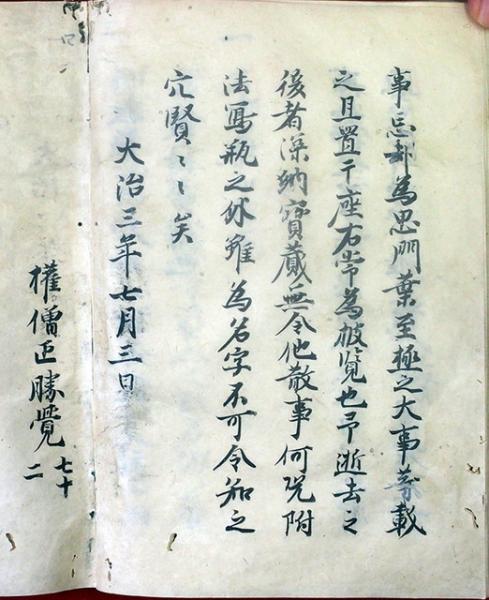 事忘却為思門葉至極之大事等載
之且置于座右常為披覧也予逝去之
後者深納寶蔵無令他散事何況附
法寫瓶之外雖為名字不可令知之
穴賢〻〻矣
大治三年七月三日
權僧正勝覺 七十二